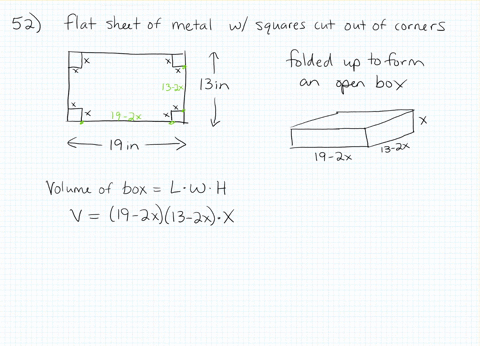 52) flat sheet of metal w/ squares cut out of corners
folded up to form
an open box
x x
x x
13-2x
13in
x x
x x
19-2x
19in
x
13-2x
19-2x
Volume of box = L·W·H
V = (19-2x)(13-2x)·X